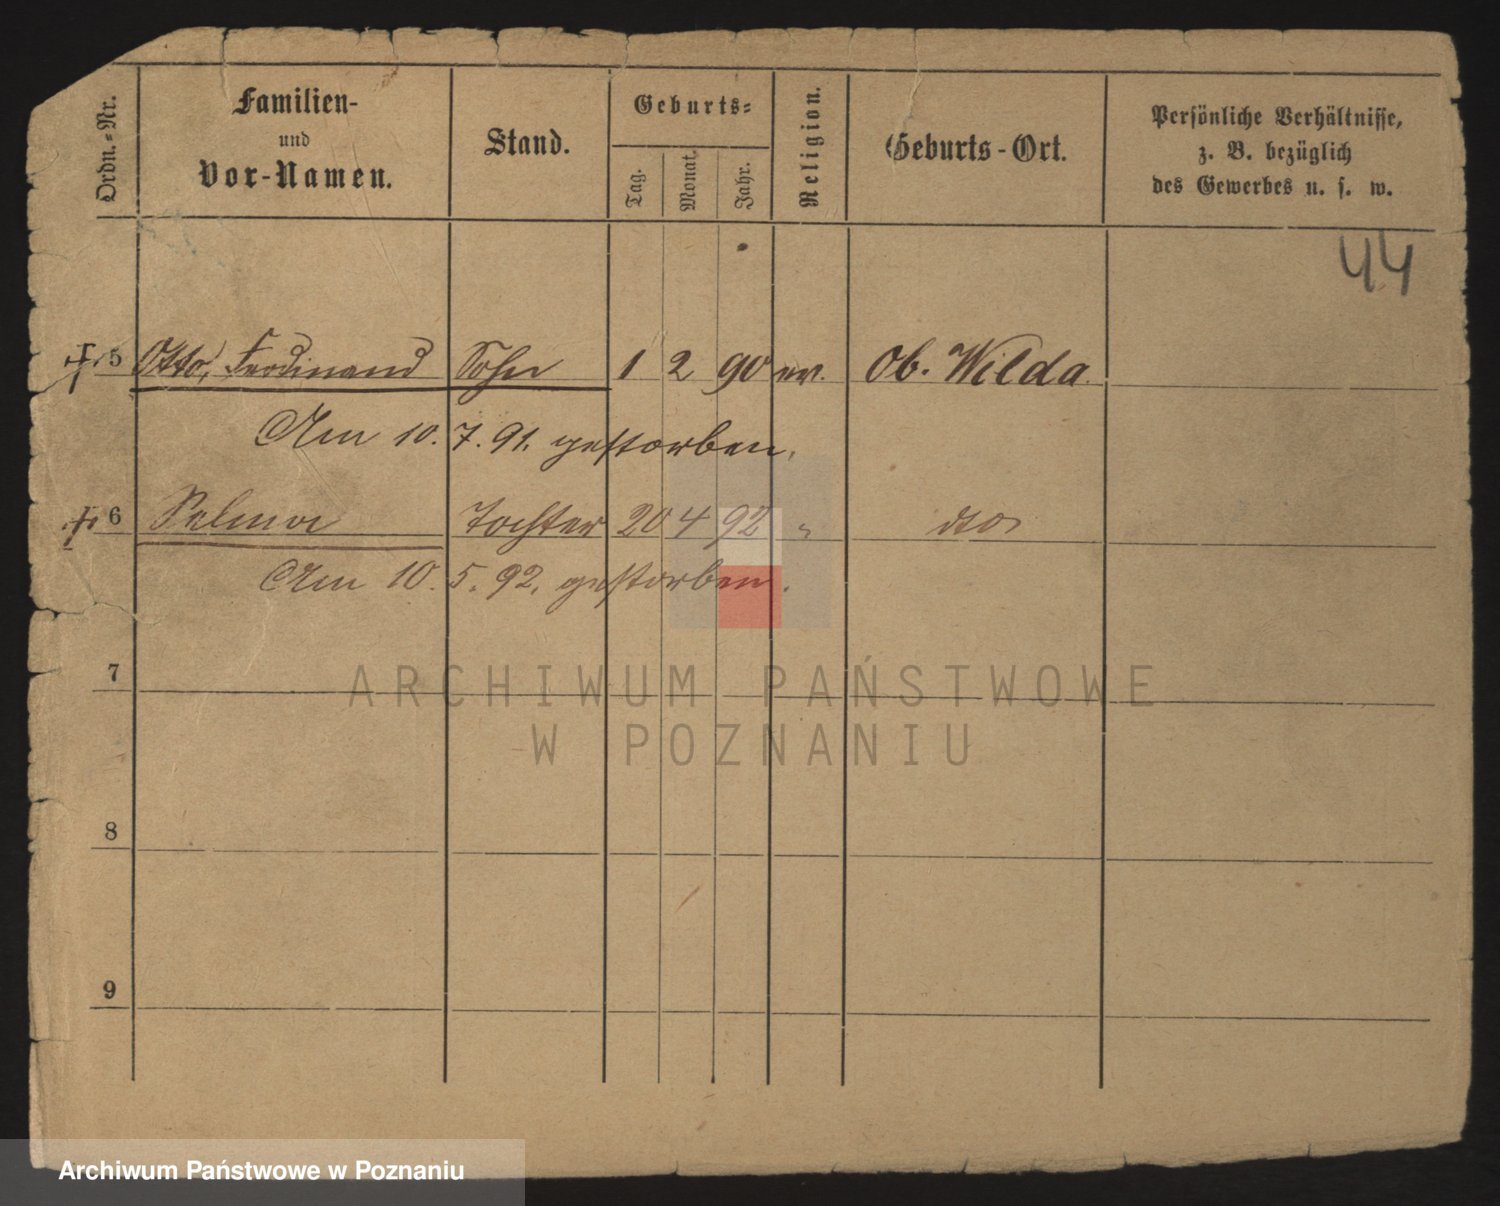 Ordn.-Nr.
Familien-
und
Vor-Namen.
Stand.
Geburts-
Tag.
Monat.
Jahr.
Religion.
Geburts-Ort.
Persönliche Verhältnisse,
z. B. bezüglich
des Gewerbes u. s. w.
44
5 Otto, Ferdinand Sohn 1 2 90 ev. Ob. Wilda
Am 10. 7. 91. gestorben.
6 Selma Tochter 20 4 92 " dto
Am 10. 5. 92. gestorben.
7
ARCHIWUM PAŃSTWOWE
W POZNANIU
8
9
Archiwum Państwowe w Poznaniu